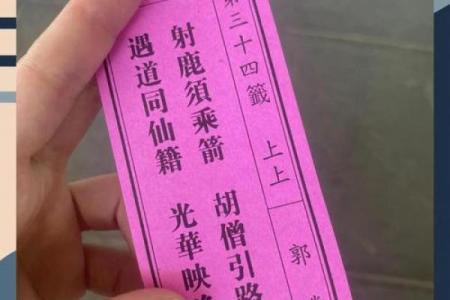 第三十四籤 上上 郭
射鹿須乘箭 胡僧引路
遇道同仙籍 光華映